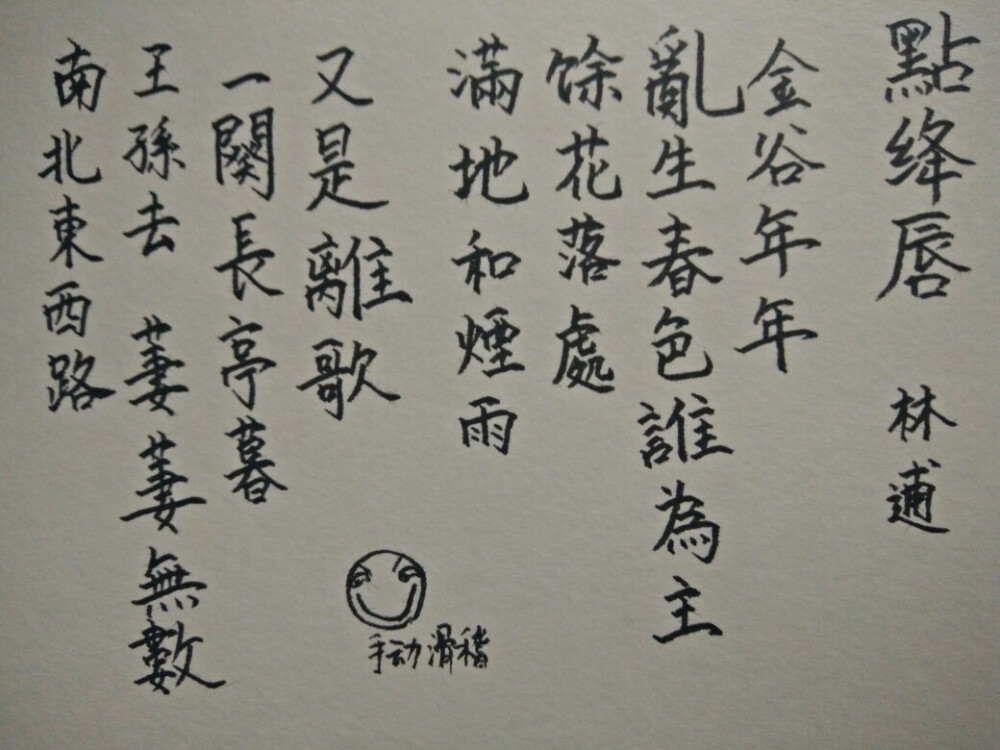 點绛唇 林逋
金谷年年
亂生春色誰為主
馀花落處
滿地和煙雨
又是離歌
一闋長亭暮
王孫去 萋萋無數
南北東西路
手动滑稽